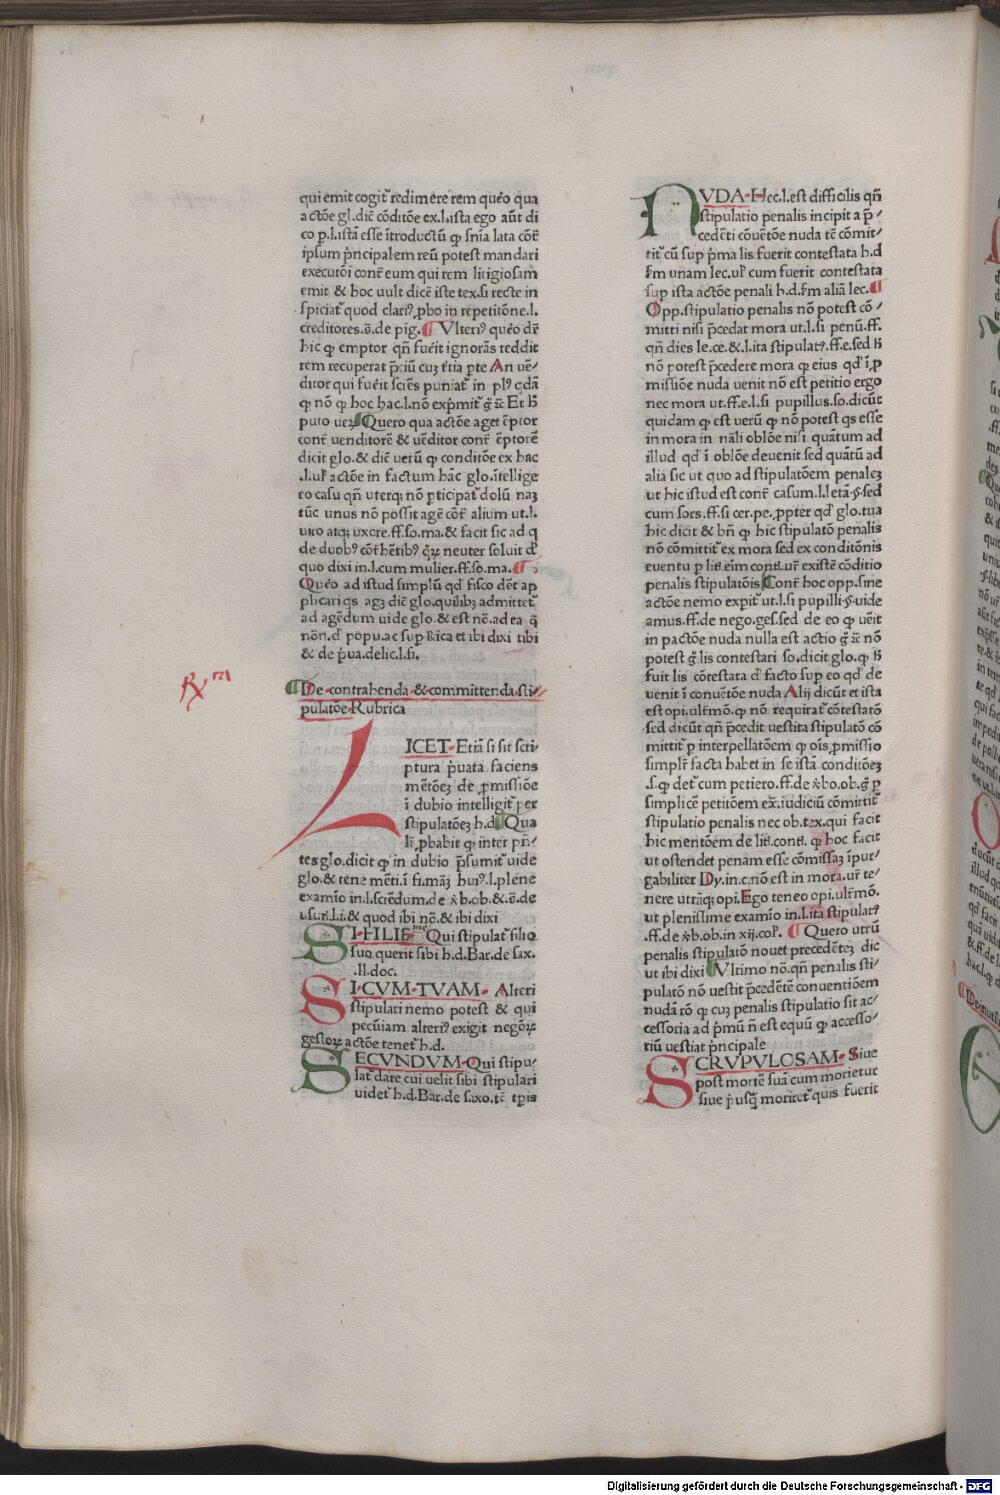 qui emit cogit᷑ redimere rem quero qua
actōe gl. diē cōditōe ex .l. ista ego aūt di
co ꝑ .l. istā esse ītroductū ꝙ snīa lata cōt᷑
ipsum p̄ncipalem reū potest mandari
executōi cont᷑ eum qui rem litigiosam
emit & hoc uult dicē iste tex. si recte in
spiciat᷑ quod clariꝰ ꝓbo in repetitōne .l.
creditores. ē. de pig. ¶ Vlteriꝰ quero dr̄
hic ꝙ emptor qn̄ fuerit ignorās reddit
rem recuperat p̄ciū cuꝫ
An uē-
ditor qui fuerit sciēs puniat᷑ in
ꝙ nō ꝙ hoc hac .l. nō exp̄mit᷑ g̊ Et h̄
puto ueꝝ Quero qua actōe aget ēptor
cont᷑ venditorē & uēditor cont᷑ ēptorē
dicit glo. & diē verū ꝙ conditōe ex hac
.l. uel actōe in factum hāc glo. ītellige
eo casu qn̄ uterqꝫ nō ꝑticipat᷑ dolū naꝫ
tūc unus nō possit agē cōt᷑ alium ut .l.
uiro atqꝫ uxore. ff. so. ma. & facit sic ad q
de duobꝰ cōt᷑hētibꝰ neuter soluit
quo dixi in .l. cum mulier. ff. so. ma. ¶
Quero ad istud simplū qd᷑ fisco dēt ap
plicari qs agꝫ diē glo. quilibꝫ admittet᷑
ad agēdum uide glo. & est nō. ad ea q̄
nōn. popu. ac sup Rica et ibi dixi tibi
& de p̄ua. delic. l. fi.
Rᵃ
¶ De contrahenda & committenda sti-
pulatōe Rubrica
LICET Etiā si sit scri
ptura p̄uata faciens
mētōeꝫ de ꝓmissiōe
ī dubio intelligit᷑ per
stipulatōeꝫ h. d. Qua
lr̄ ꝓbabit ꝙ inter p̄n-
tes glo. dicit ꝙ in dubio p̄sumit᷑ uide
glo. & tene mēti ī fi. māꝫ huiꝰ .l. plene
examīo in .l. sciēdum. de ꝟb. ob. & ē. de
usur. l. i. & quod ibi nō. & ibi dixi
SI FILIE Qui stipulat᷑ filio
suo querit sibi h. d. Bar. de sax.
.ll. doc.
SI CVM TVAM Alteri
stipulari nemo potest & qui
pecūiam alteriꝰ exigit negōꝝ
gestoꝝ actōe tenet᷑ h. d.
SECVNDVM Qui stipu-
lat᷑ dare cui uelit sibi stipulari
uidet᷑ h. d. Bar. de saxo. tē tp̄is
NVDA Hec .l. est difficilis qn̄
stipulatio penalis incipit a p̄-
cedēti cōuētōe nuda tē cōmit-
tit᷑ cū sup p̄ma lis fuerit contestata h. d
s̄m unam lec. uel cum fuerit contestata
sup ista actōe penali h. d. s̄m aliā lec. ¶
Opp. stipulatio penalis nō potest cō-
mitti nisi p̄cedat mora ut .l. si penū. ff.
qn̄ dies le. ce. & .l. ita stipulatꝰ. ff. e. sed h̄
nō potest p̄cedere mora ꝙ eius qd᷑ ī ꝓ
missiōe nuda uenit nō est petitio ergo
nec mora ut. ff. e. l. si pupillus. so. dicūt
quidam ꝙ est verū ꝙ nō potest qs esse
in mora in nāli oblōe nisi quātum ad
illud qd᷑ ī oblōe deuenit sed quātū ad
alia sic ut quo ad stipulatōem penaleꝫ
ut hic istud est cont᷑ casum .l. letā. §. sed
cum sors. ff. si cer. pe. ꝓpter qd᷑ glo. tua
hic dicit & bn̄ ꝙ hic stipulatō penalis
nō cōmittit᷑ ex mora sed ex conditōnis
euentu ꝑ lit᷑ eīm contī. ur᷑ existē cōditio
penalis stipulatōis Cont᷑ hoc opp. sine
actōe nemo expit᷑ ut .l. si pupilli. §. uide
amus. ff. de nego. ges. sed de eo ꝙ uēit
in pactōe nuda nulla est actio g̊ nō
potest g̊ lis contestari so. dicit glo. ꝙ h̄
fuit lis cōtestata d᷑ facto sup eo qd᷑ de
uenit ī conuētōe nuda Alij dicūt et ista
est opi. ultīmō. ꝙ nō requirat᷑ cōtestatō
sed dicūt qn̄ p̄cedit vestita stipulatō cō
mittit᷑ ꝑ interpellatōem ꝙ oīs ꝓmissio
simplr̄ facta habet in se istā conditōeꝫ
.s. ꝙ det᷑ cum petiero. ff. de ꝟbo. ob. g̊ ꝑ
simplicē petitōem ex᷑. iudiciū cōmittit᷑
stipulatio penalis nec ob. tex. qui facit
hic mentōem de lit᷑. contī. ꝙ hoc facit
ut ostendet penam esse cōmissaꝫ īpur-
gabiliter Dy. in. c. nō est in mora. ur᷑ te-
nere utrāqꝫ opi. Ego teneo opi. ultīmō.
ut plenissime examīo in .l. ita stipulatꝰ
.ff. de ꝟb. ob. in xij. col. ¶ Quero utrū
penalis stipulatō nouet precedēteꝫ dic
ut ibi dixi Vltimo nō. qn̄ penalis sti-
pulatō nō vestit p̄cedētē conuentiōem
nudā rō ꝙ cuꝫ penalis stipulatio sit ac-
cessoria ad p̄mū n̄ est equū ꝙ accesso-
riū uestiat p̄ncipale
SCRVPVLOSAM Siue
post mortē suā cum morietur
siue p̄usꝗ̄ moriret᷑ quis fuerit
Digitalisierung gefördert durch die Deutsche Forschungsgemeinschaft - DFG